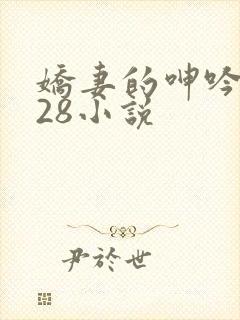 嬌妻的呻吟
28小說
尹於世